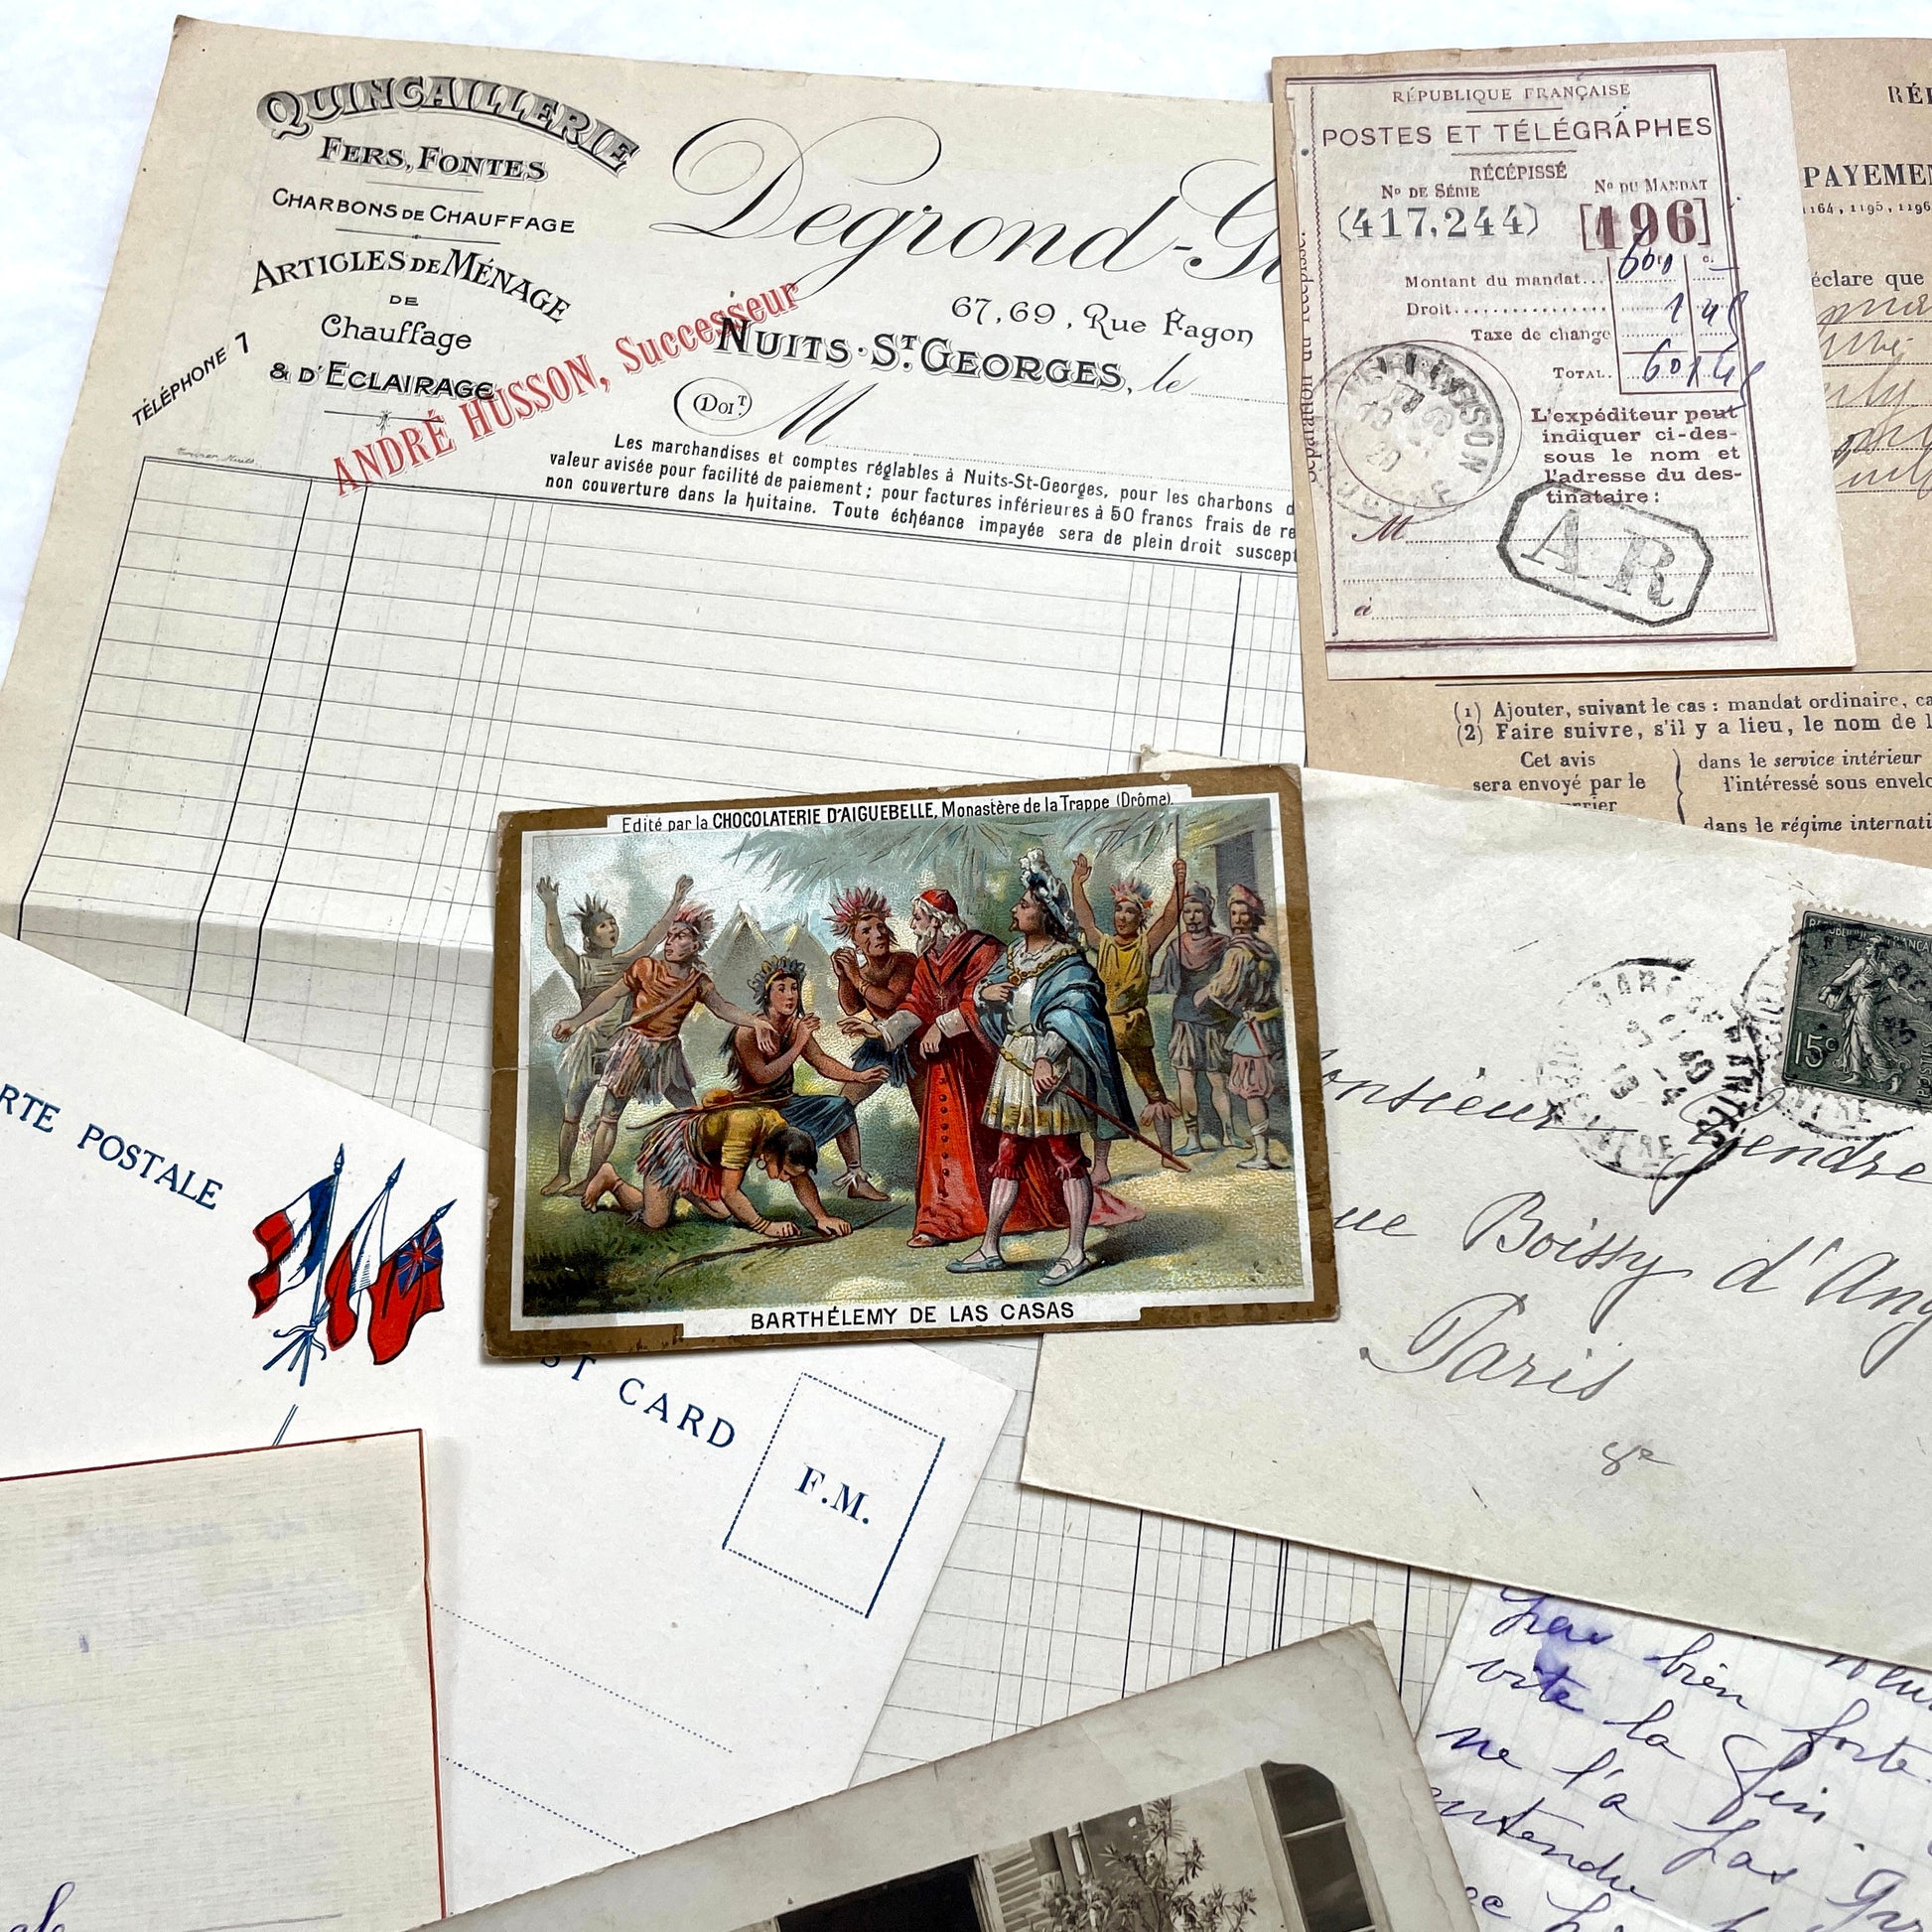 QUINCAILLERIE
FERS, FONTES
CHARBONS DE CHAUFFAGE
ARTICLES DE MÉNAGE
DE
Chauffage
& D'ECLAIRAGE
TÉLÉPHONE 7
ANDRÉ HUSSON, Successeur
Degrond-G
67, 69, Rue Fagon
NUITS-ST GEORGES, le
DOIT M
Les marchandises et comptes réglables à Nuits-St-Georges, pour les charbons d
valeur avisée pour facilité de paiement; pour factures inférieures à 50 francs frais de re
non couverture dans la huitaine. Toute échéance impayée sera de plein droit suscept
RÉPUBLIQUE FRANÇAISE
POSTES ET TÉLÉGRAPHES
RÉCÉPISSÉ
No DE SÉRIE No DU MANDAT
(417,244) [196]
Montant du mandat... 600
Droit 1 45
Taxe de change
TOTAL. 601 45
L'expéditeur peut
indiquer ci-des-
sous le nom et
l'adresse du des-
tinataire:
M
à
AR
Séparation du récépissé.
RÉ
PAYEMEN
1164, 1195, 1196
éclare que
(1) Ajouter, suivant le cas : mandat ordinaire, ca
(2) Faire suivre, s'il y a lieu, le nom de l
Cet avis
sera envoyé par le
dans le service intérieur
l'intéressé sous envelo
dans le régime internati
Edité par la CHOCOLATERIE D'AIGUEBELLE, Monastère de la Trappe (Drôme).
BARTHÉLEMY DE LAS CASAS
RTE POSTALE
ST CARD
F.M.
RÉPUBLIQUE FRANÇAI
15c
onsieur Gendre
ue Boissy d'Ang
Paris
pas bien forte
vite la fin.
ne l'a pas
entendu